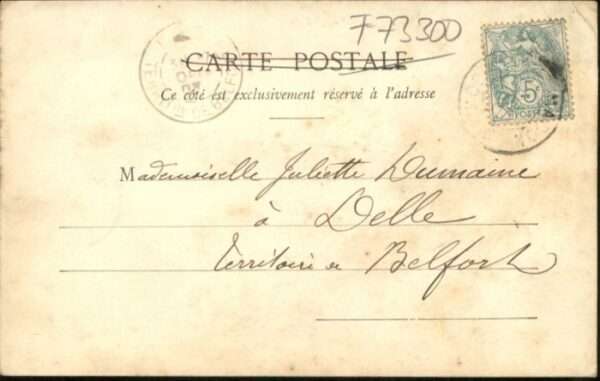 773300
CARTE POSTALE
Ce côté est exclusivement réservé à l'adresse
5c
POSTES
Mademoiselle Juliette Dumaine
à Delle
Territoire de Belfort